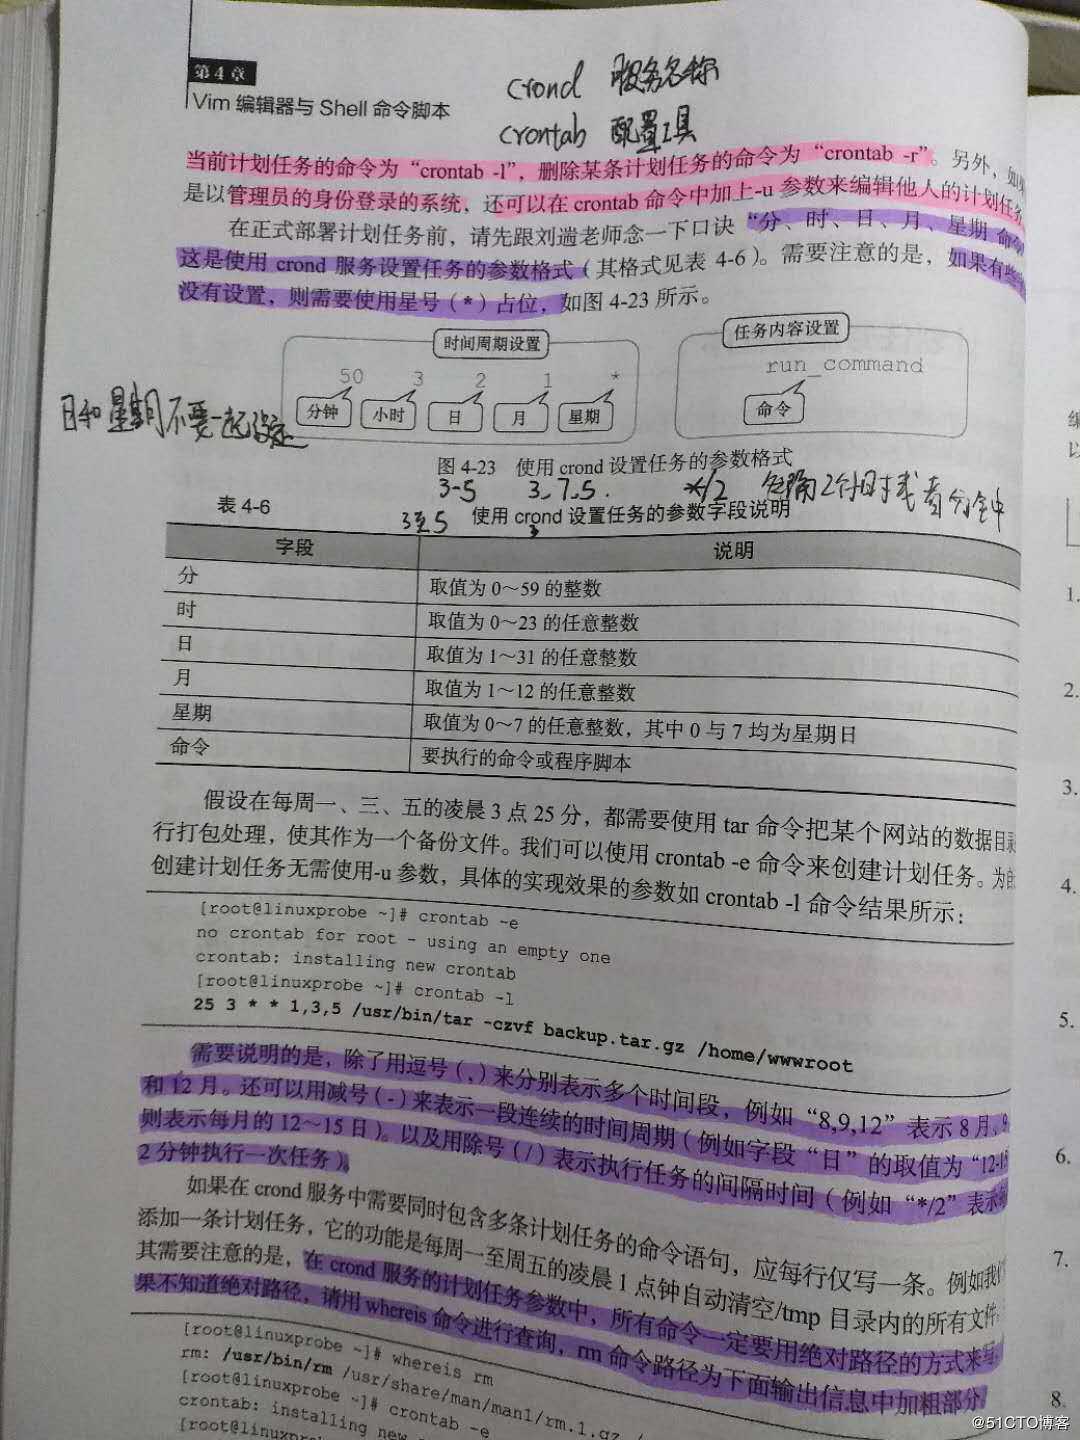 第4章
Vim 编辑器与 Shell 命令脚本
crond 服务名称
crontab 配置工具
当前计划任务的命令为“crontab -l”，删除某条计划任务的命令为“crontab -r”。另外，如
是以管理员的身份登录的系统，还可以在 crontab 命令中加上-u 参数来编辑他人的计划任务
在正式部署计划任务前，请先跟刘遄老师念一下口诀“分、时、日、月、星期 命令
这是使用 crond 服务设置任务的参数格式（其格式见表 4-6）。需要注意的是，如果有些
没有设置，则需要使用星号（*）占位，如图 4-23 所示。
时间周期设置
任务内容设置
50 3 2 1 *
run_command
分钟 小时 日 月 星期
命令
日和星期不要一起设定
图 4-23 使用 crond 设置任务的参数格式
3-5 3,7,5. */2 每隔2个时 看分钟
3至5
表 4-6 使用 crond 设置任务的参数字段说明
字段 说明
分 取值为 0～59 的整数
时 取值为 0～23 的任意整数
日 取值为 1～31 的任意整数
月 取值为 1～12 的任意整数
星期 取值为 0～7 的任意整数，其中 0 与 7 均为星期日
命令 要执行的命令或程序脚本
假设在每周一、三、五的凌晨 3 点 25 分，都需要使用 tar 命令把某个网站的数据目录
行打包处理，使其作为一个备份文件。我们可以使用 crontab -e 命令来创建计划任务。为自
创建计划任务无需使用-u 参数，具体的实现效果的参数如 crontab -l 命令结果所示：
[root@linuxprobe ~]# crontab -e
no crontab for root - using an empty one
crontab: installing new crontab
[root@linuxprobe ~]# crontab -l
25 3 * * 1,3,5 /usr/bin/tar -czvf backup.tar.gz /home/wwwroot
需要说明的是，除了用逗号（,）来分别表示多个时间段，例如“8,9,12”表示 8 月、9
和 12 月。还可以用减号（-）来表示一段连续的时间周期（例如字段“日”的取值为“12-15
则表示每月的 12～15 日）。以及用除号（/）表示执行任务的间隔时间（例如“*/2”表示
2 分钟执行一次任务）。
如果在 crond 服务中需要同时包含多条计划任务的命令语句，应每行仅写一条。例如我们
添加一条计划任务，它的功能是每周一至周五的凌晨 1 点钟自动清空/tmp 目录内的所有文件
其需要注意的是，在 crond 服务的计划任务参数中，所有命令一定要用绝对路径的方式来写
果不知道绝对路径，请用 whereis 命令进行查询，rm 命令路径为下面输出信息中加粗部分
[root@linuxprobe ~]# whereis rm
rm: /usr/bin/rm /usr/share/man/man1/rm.1.gz
[root@linuxprobe ~]# crontab -e
crontab: installing new
[root@linuxprobe
编
以
1.
2.
3.
4.
5.
6.
7.
8.
@51CTO博客